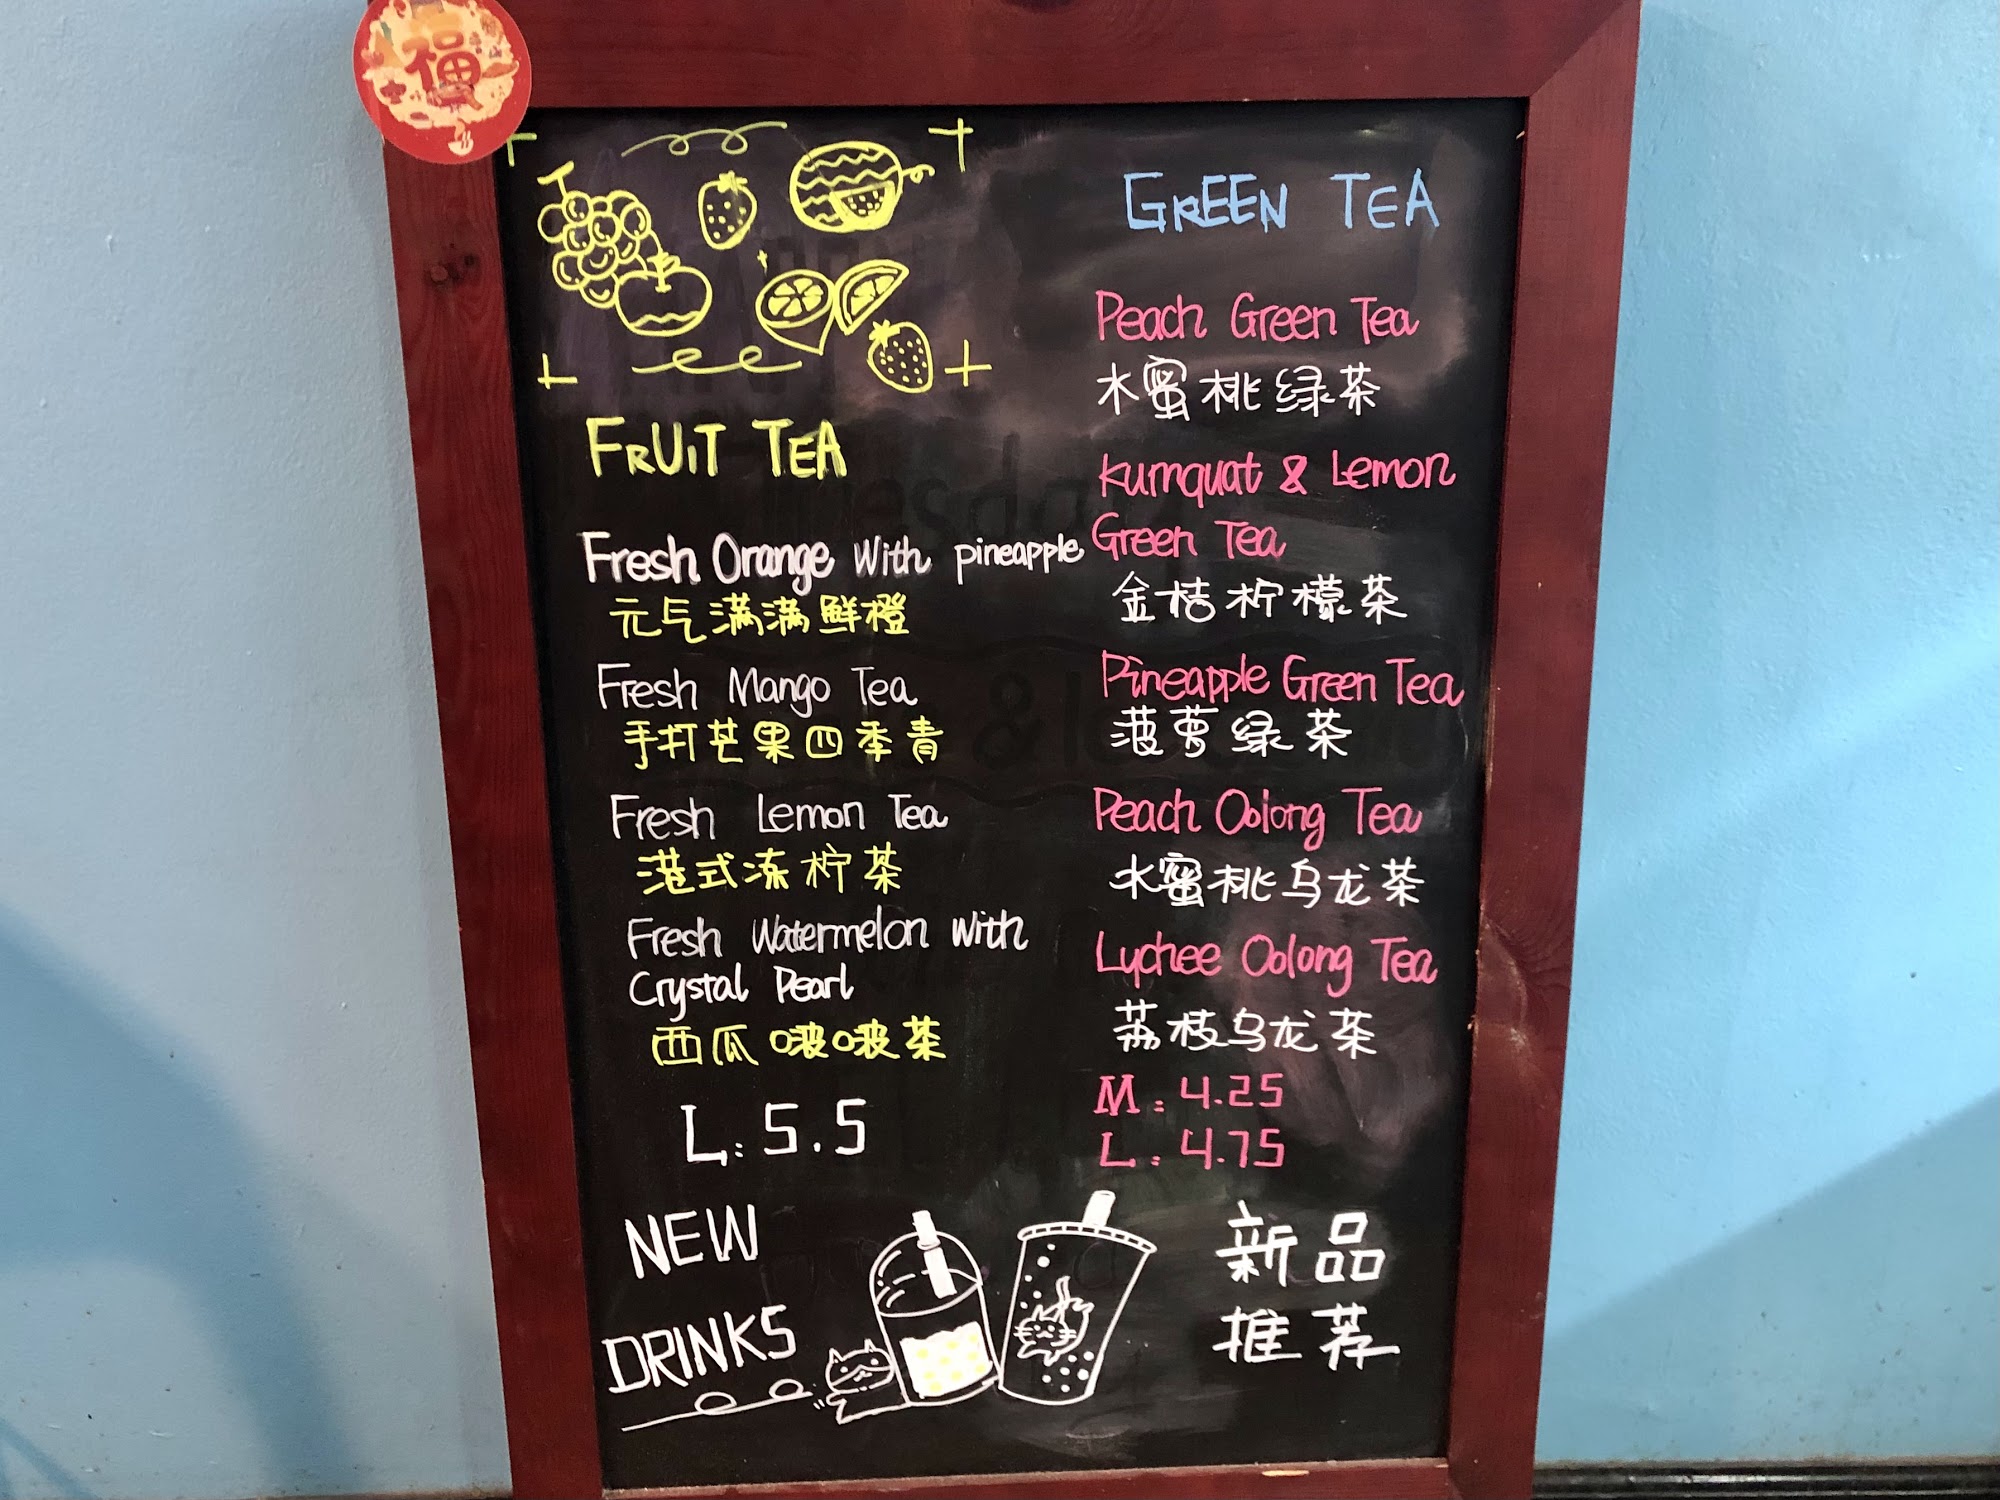 福
FRUIT TEA
Fresh Orange with pineapple
元气满满鲜橙
Fresh Mango Tea
手打芒果四季青
Fresh Lemon Tea
港式冻柠茶
Fresh Watermelon with
Crystal Pearl
西瓜啵啵茶
L: 5.5
GREEN TEA
Peach Green Tea
水蜜桃绿茶
Kumquat & Lemon
Green Tea
金桔柠檬茶
Pineapple Green Tea
菠萝绿茶
Peach Oolong Tea
水蜜桃乌龙茶
Lychee Oolong Tea
荔枝乌龙茶
M: 4.25
L: 4.75
NEW
DRINKS
新品
推荐